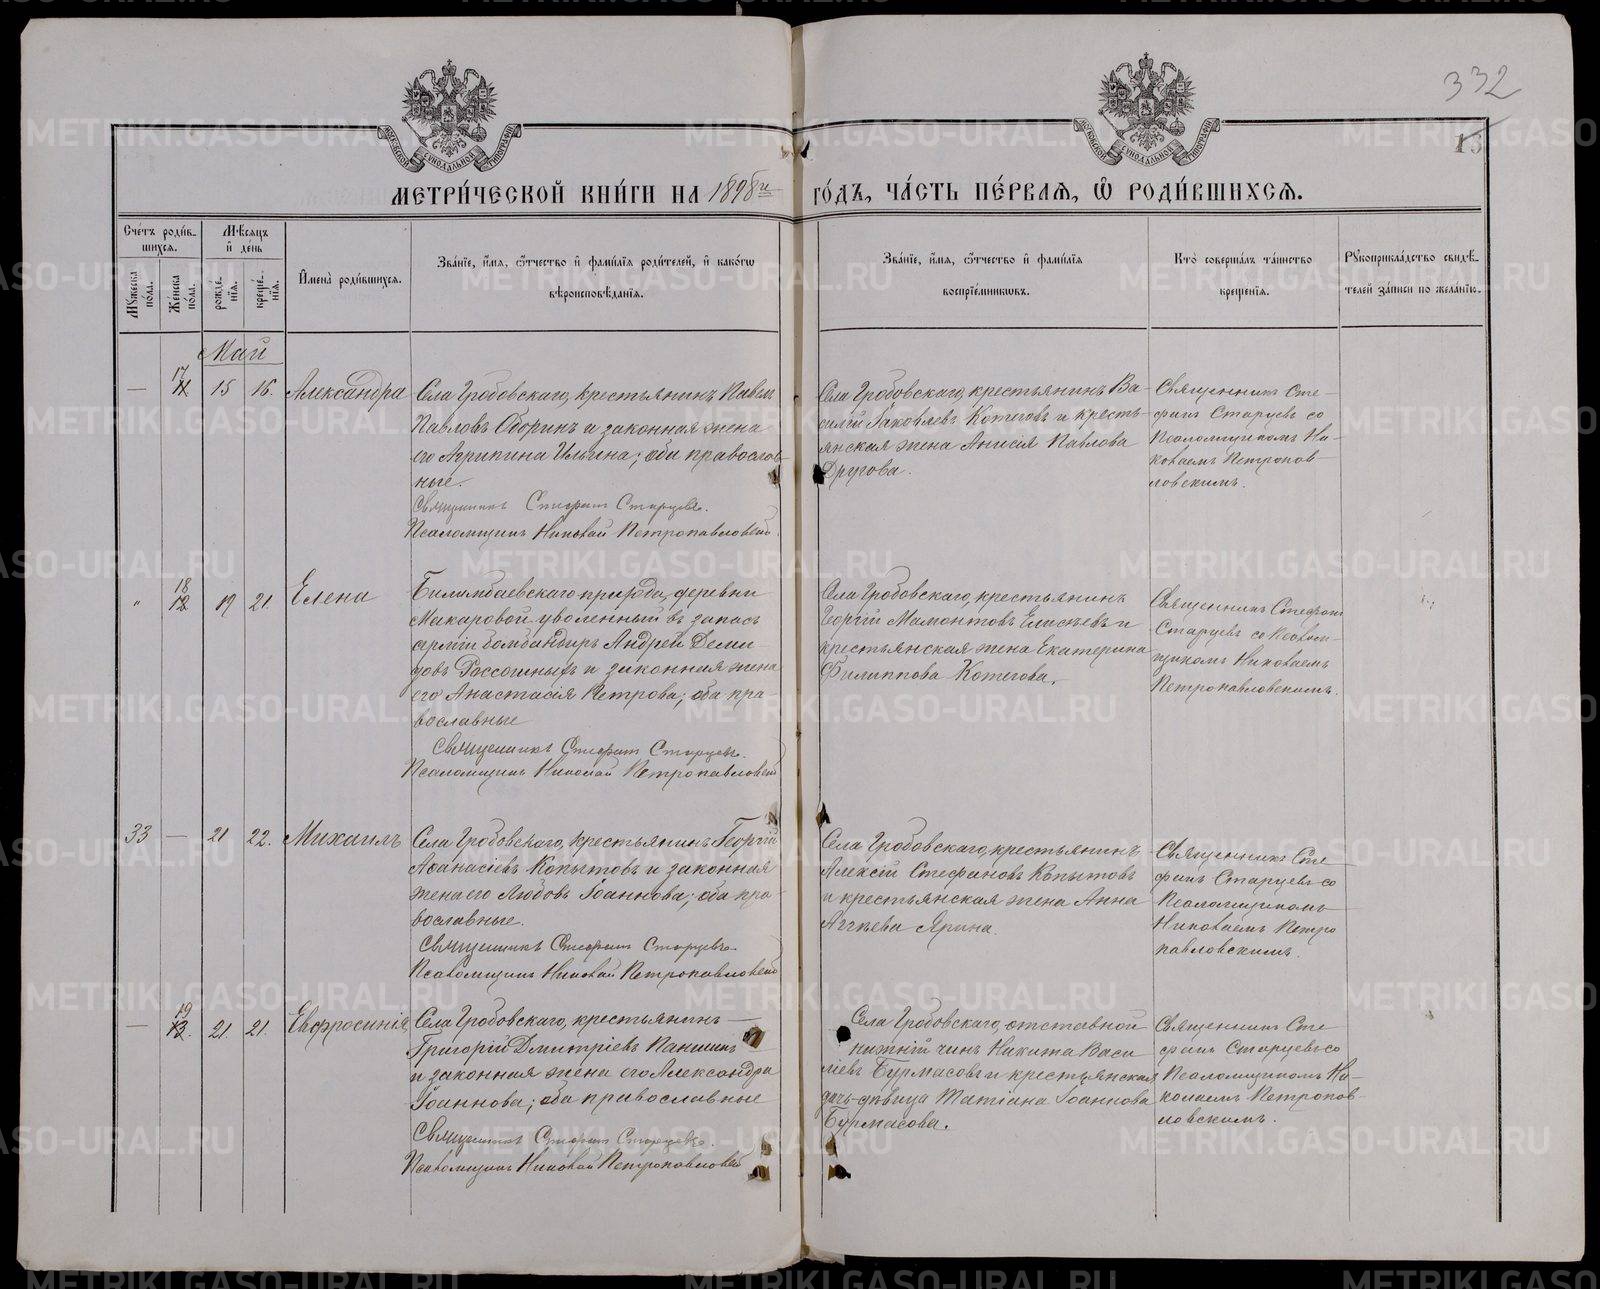 332
15
МОСКОВСКОЙ СУНОДАЛЬНОЙ ТИПОГРАФІИ
МОСКОВСКОЙ СУНОДАЛЬНОЙ ТИПОГРАФІИ
МЕТРИ́ЧЕСКОЙ КНИ́ГИ НА 1898й ГО́ДЪ, ЧА́СТЬ ПЕ́РВАЯ, Ѡ РОДИ́ВШИХСЯ.
Сче́тъ роди́в-
шихся.
Му́жеска по́ла.
Же́нска по́ла.
Мѣ́сяцъ
и де́нь
рожде́-
нїя.
креще́-
нїя.
И҆мена̀ роди́вшихся.
Зва́нїе, и҆́мя, ѻ҆́тчество и҆ фами́лїя роди́телей, и҆ како́гѡ
вѣроисповѣ́данїя.
Зва́нїе, и҆́мя, ѻ҆́тчество и҆ фами́лїя
воспрїе́мникѡвъ.
Кто̀ соверша́лъ та́инство
креще́нїя.
Рꙋкоприкла́дство свидѣ́-
телей за́писи по жела́нїю.
Май
— 17 11 15 16. Александра
Села Гробовскаго, крестьянинъ Павелъ
Павловъ Оборинъ и законная жена
его Агрипина Ильина; оба православ-
ные.
Священникъ Стефанъ Старцевъ.
Псаломщикъ Николай Петропавловскій
Села Гробовскаго, крестьянинъ Ва-
силій Іаковлевъ Котеговъ и кресть-
янская жена Анисія Павлова
Другова.
Священникъ Сте-
фанъ Старцевъ со
Псаломщикомъ Ни-
колаемъ Петропав-
ловскимъ.
„ 18 12 19 21. Елена
Билимбаевскаго прихода, деревни
Макаровой уволенный въ запасъ
арміи бомбандиръ Андрей Деми-
довъ Рассошныхъ и законная жена
его Анастасія Петрова; оба пра-
вославные
Священникъ Стефанъ Старцевъ.
Псаломщикъ Николай Петропавловскій
Села Гробовскаго, крестьянинъ
Георгій Мамонтовъ Елисѣевъ и
крестьянская жена Екатерина
Филиппова Котегова.
Священникъ Стефанъ
Старцевъ со Псалом-
щикомъ Николаемъ
Петропавловскимъ.
33 — 21 22. Михаилъ
Села Гробовскаго, крестьянинъ Георгій
Аѳанасіевъ Копытовъ и законная
жена его Любовь Іоаннова; оба пра-
вославные.
Священникъ Стефанъ Старцевъ.
Псаломщикъ Николай Петропавловскій
Села Гробовскаго, крестьянинъ
Алексій Стефановъ Копытовъ
и крестьянская жена Анна
Аггѣева Ярина.
Священникъ Сте-
фанъ Старцевъ со
Псаломщикомъ
Николаемъ Петро
павловскимъ.
— 19 13. 21. 21. Евфросинія
Села Гробовскаго, крестьянинъ —
Григорій Дмитріевъ Паншинъ
и законная жена его Александра
Іоаннова; оба православные
Священникъ Стефанъ Старцевъ.
Псаломщикъ Николай Петропавловскій
Села Гробовскаго, отставной
нижній чинъ Никита Васи
ліевъ Бурмасовъ и крестьянская
дочь-дѣвица Татіана Іоаннова
Бурмасова.
Священникъ Сте
фанъ Старцевъ со
Псаломщикомъ Ни-
колаемъ Петропав-
ловскимъ.
METRIKI.GASO-URAL.RU